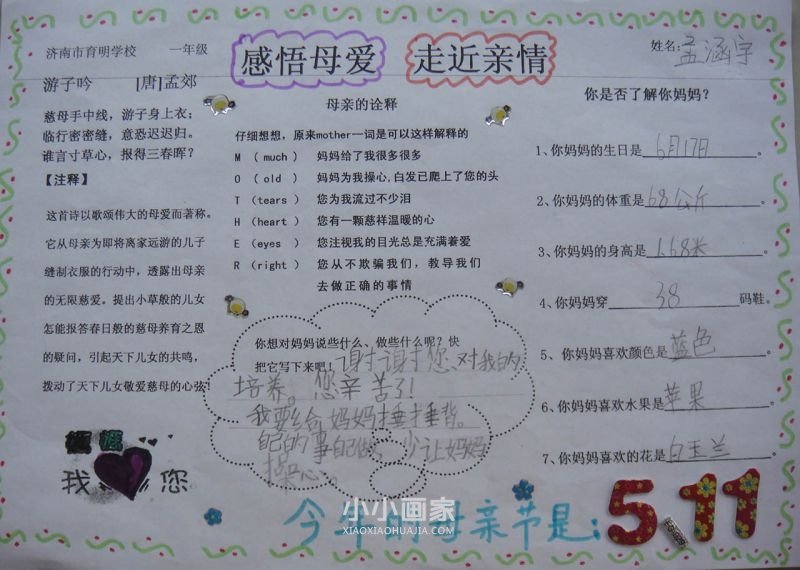 济南市育明学校 一年级
感悟母爱 走近亲情
姓名:孟涵宇
游子吟 [唐]孟郊
慈母手中线，游子身上衣；
临行密密缝，意恐迟迟归。
谁言寸草心，报得三春晖？
【注释】
这首诗以歌颂伟大的母爱而著称。
它从母亲为即将离家远游的儿子
缝制衣服的行动中，透露出母亲
的无限慈爱。提出小草般的儿女
怎能报答春日般的慈母养育之恩
的疑问，引起天下儿女的共鸣，
拨动了天下儿女敬爱慈母的心弦!
妈妈
我 您
母亲的诠释
仔细想想，原来mother一词是可以这样解释的
M （much） 妈妈给了我很多很多
O （old） 妈妈为我操心,白发已爬上了您的头
T （tears） 您为我流过不少泪
H （heart） 您有一颗慈祥温暖的心
E （eyes） 您注视我的目光总是充满着爱
R （right） 您从不欺骗我们，教导我们
去做正确的事情
你想对妈妈说些什么、做些什么呢？快
把它写下来吧！谢谢您、对我的
培养。您辛苦了!
我要给妈妈捶捶背。
自己的事自己做，少让妈妈
操心。
你是否了解你妈妈？
1、你妈妈的生日是6月17日。
2、你妈妈的体重是68公斤。
3、你妈妈的身高是1.68米。
4、你妈妈穿38码鞋。
5、你妈妈喜欢颜色是蓝色。
6、你妈妈喜欢水果是苹果。
7、你妈妈喜欢的花是白玉兰。
今年的母亲节是：5.11
小小画家
XIAOXIAOHUAJIA.COM